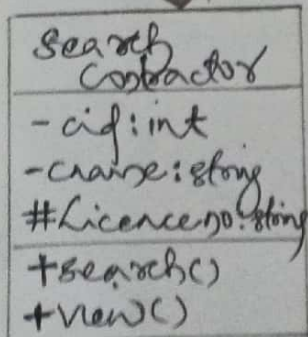 Search
Contractor
- cid: int
- cname: string
# Licence no: string
+ search()
+ view()